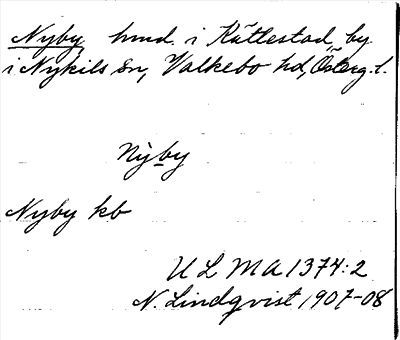 Nyby, hmd. i Kättestad, by
i Nykils sn, Valkebo hd, Österg. l.
Nỳby
Nyby kb
ULMA 1374:2
N. Lindqvist 1907-08